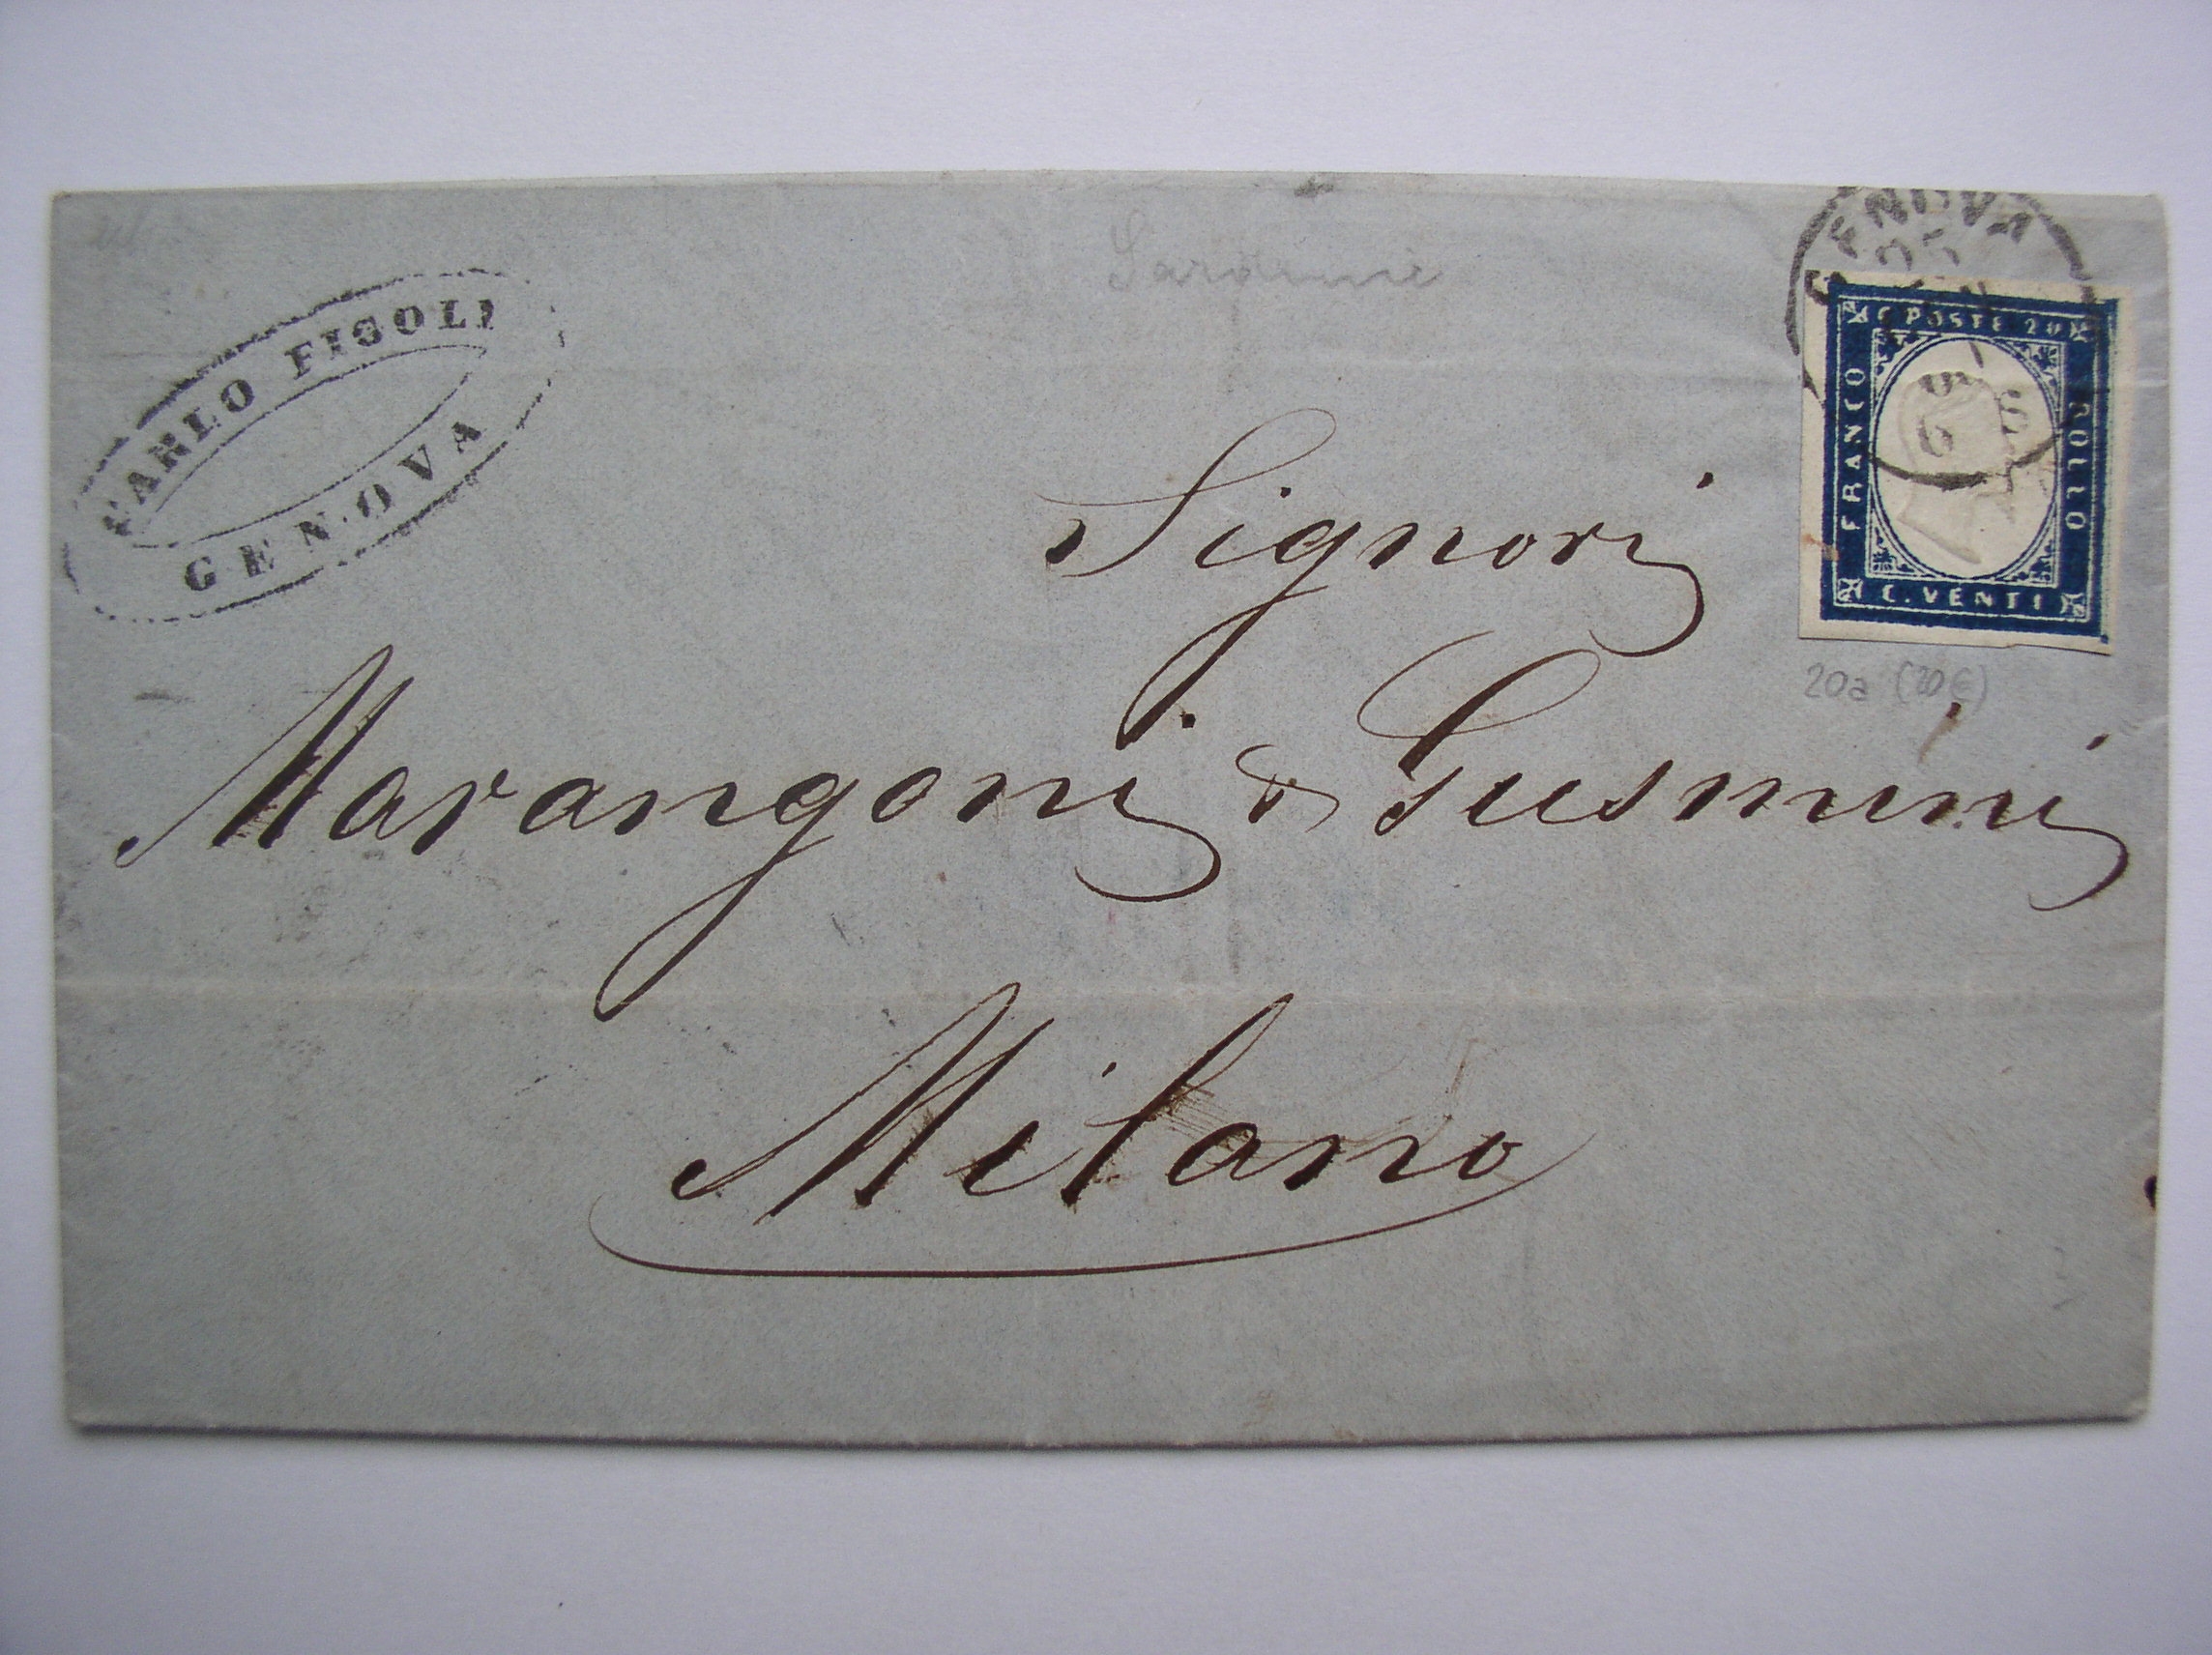 CARLO FIGOLI
GENOVA
Sardinie
GENOVA
C. POSTE 20
FRANCO
BOLLO
C. VENTI
20a (20€)
Signori
Marangoni & Gusmini
Milano